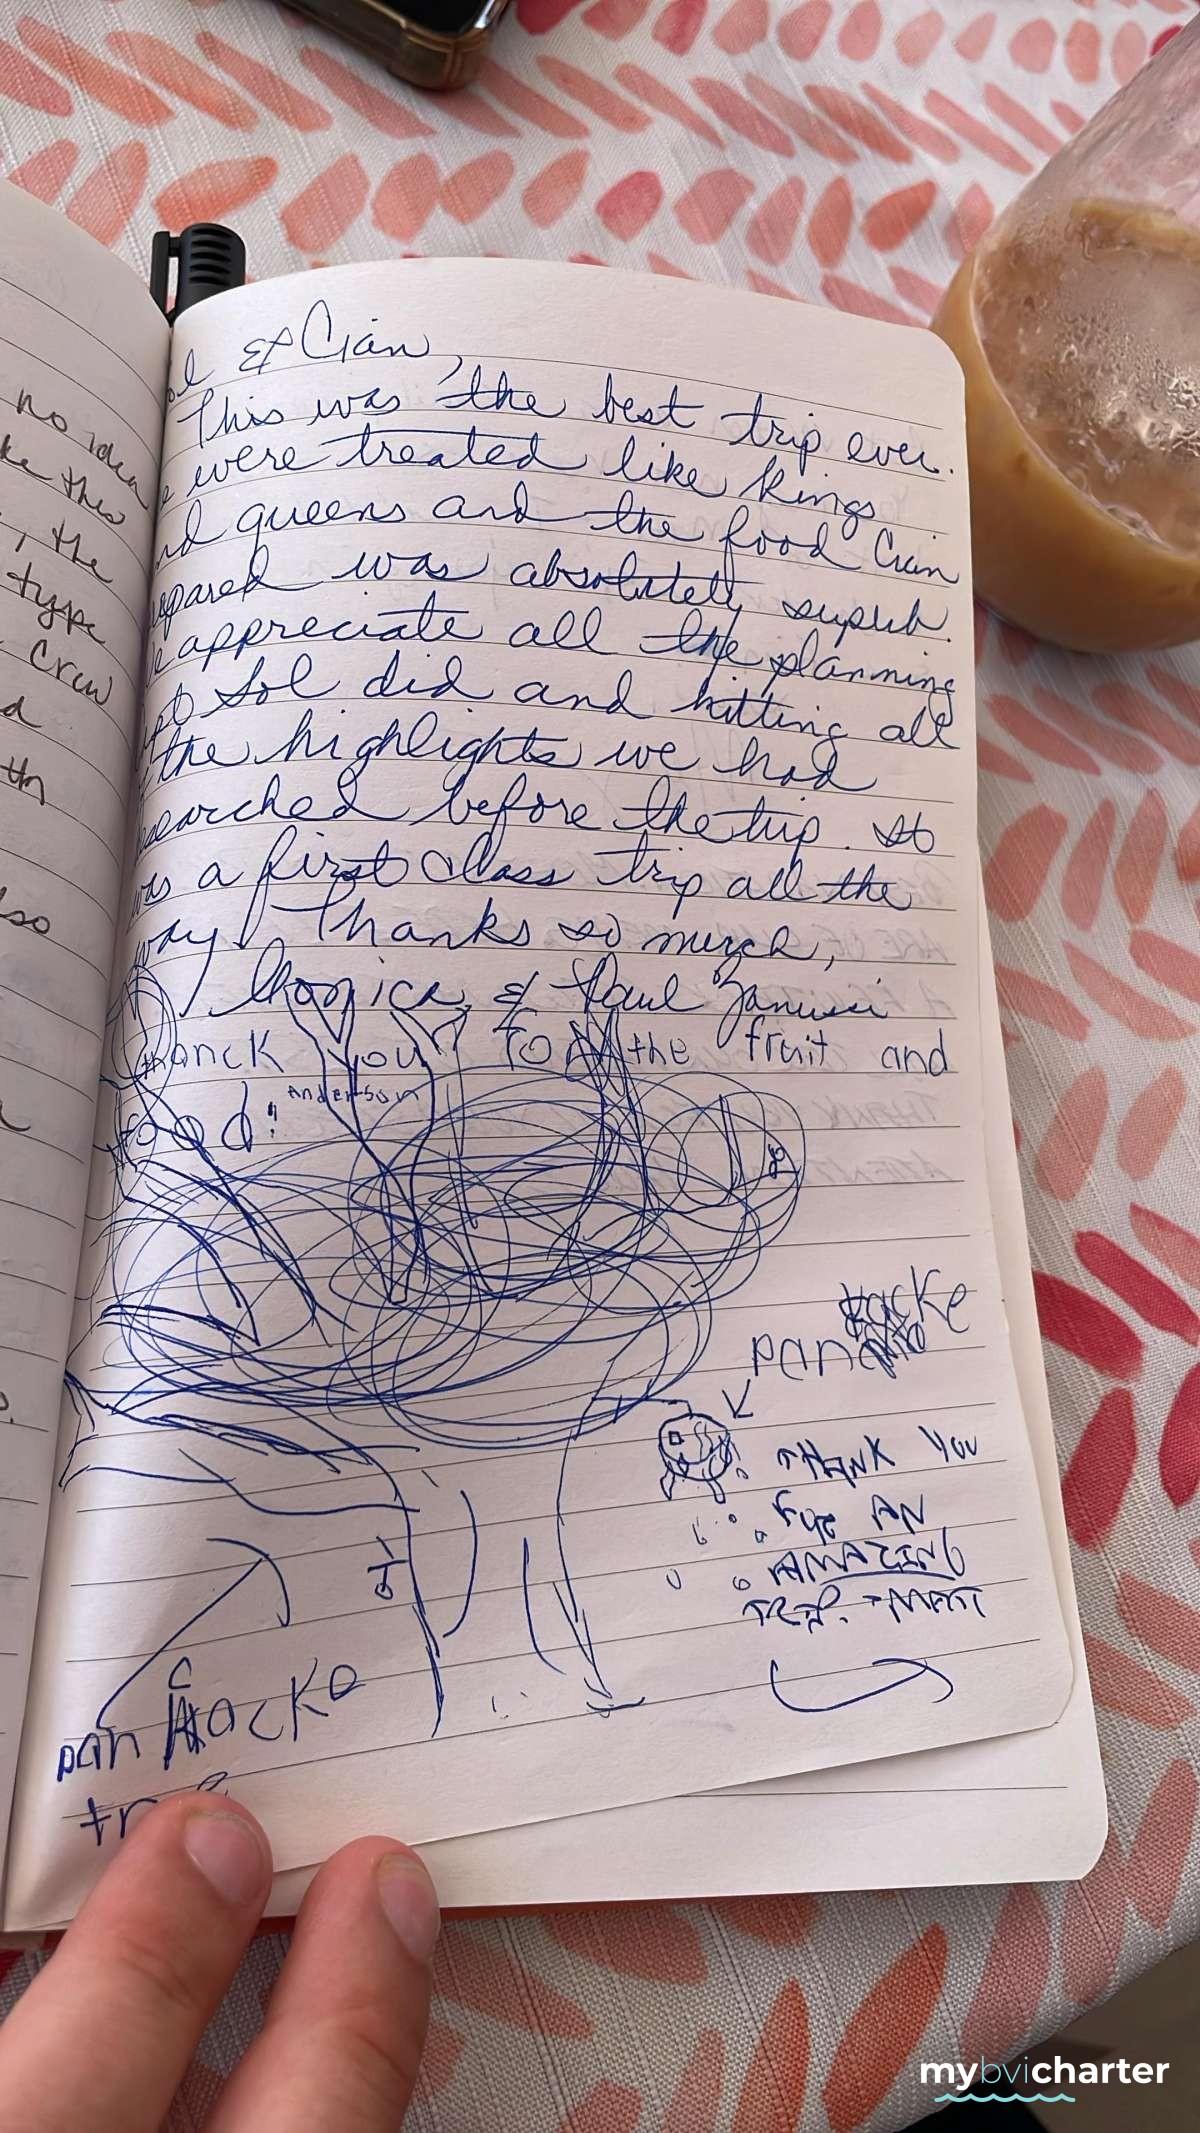 no idea
the
type
crew
ol & Cian,
This was the best trip ever.
e were treated like kings
nd queens and the food Cian
epared was absolutely superb.
e appreciate all the planning
pt Sol did and hitting all
the highlights we had
searched before the trip. It
was a first class trip all the
way! Thanks so much,
Monica & Paul Zanussi
thanck you for the fruit and
food!
Anderson
packe
pan
THANK YOU
FOR AN
AMAZING
TRIP. -MATT
pan cacke
tre
mybvicharter